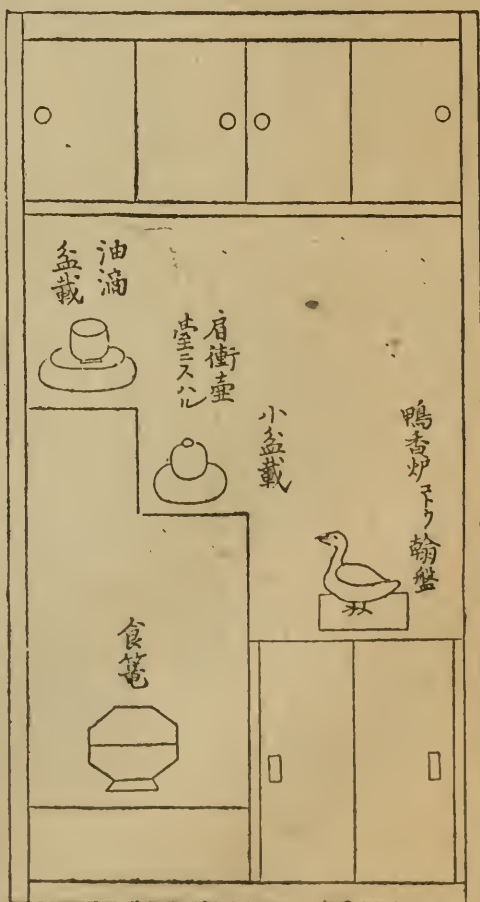 鴨香炉コトウ翰盤
小盆載
肩衝壷
臺ニスハル
油滴
盆載
食篭